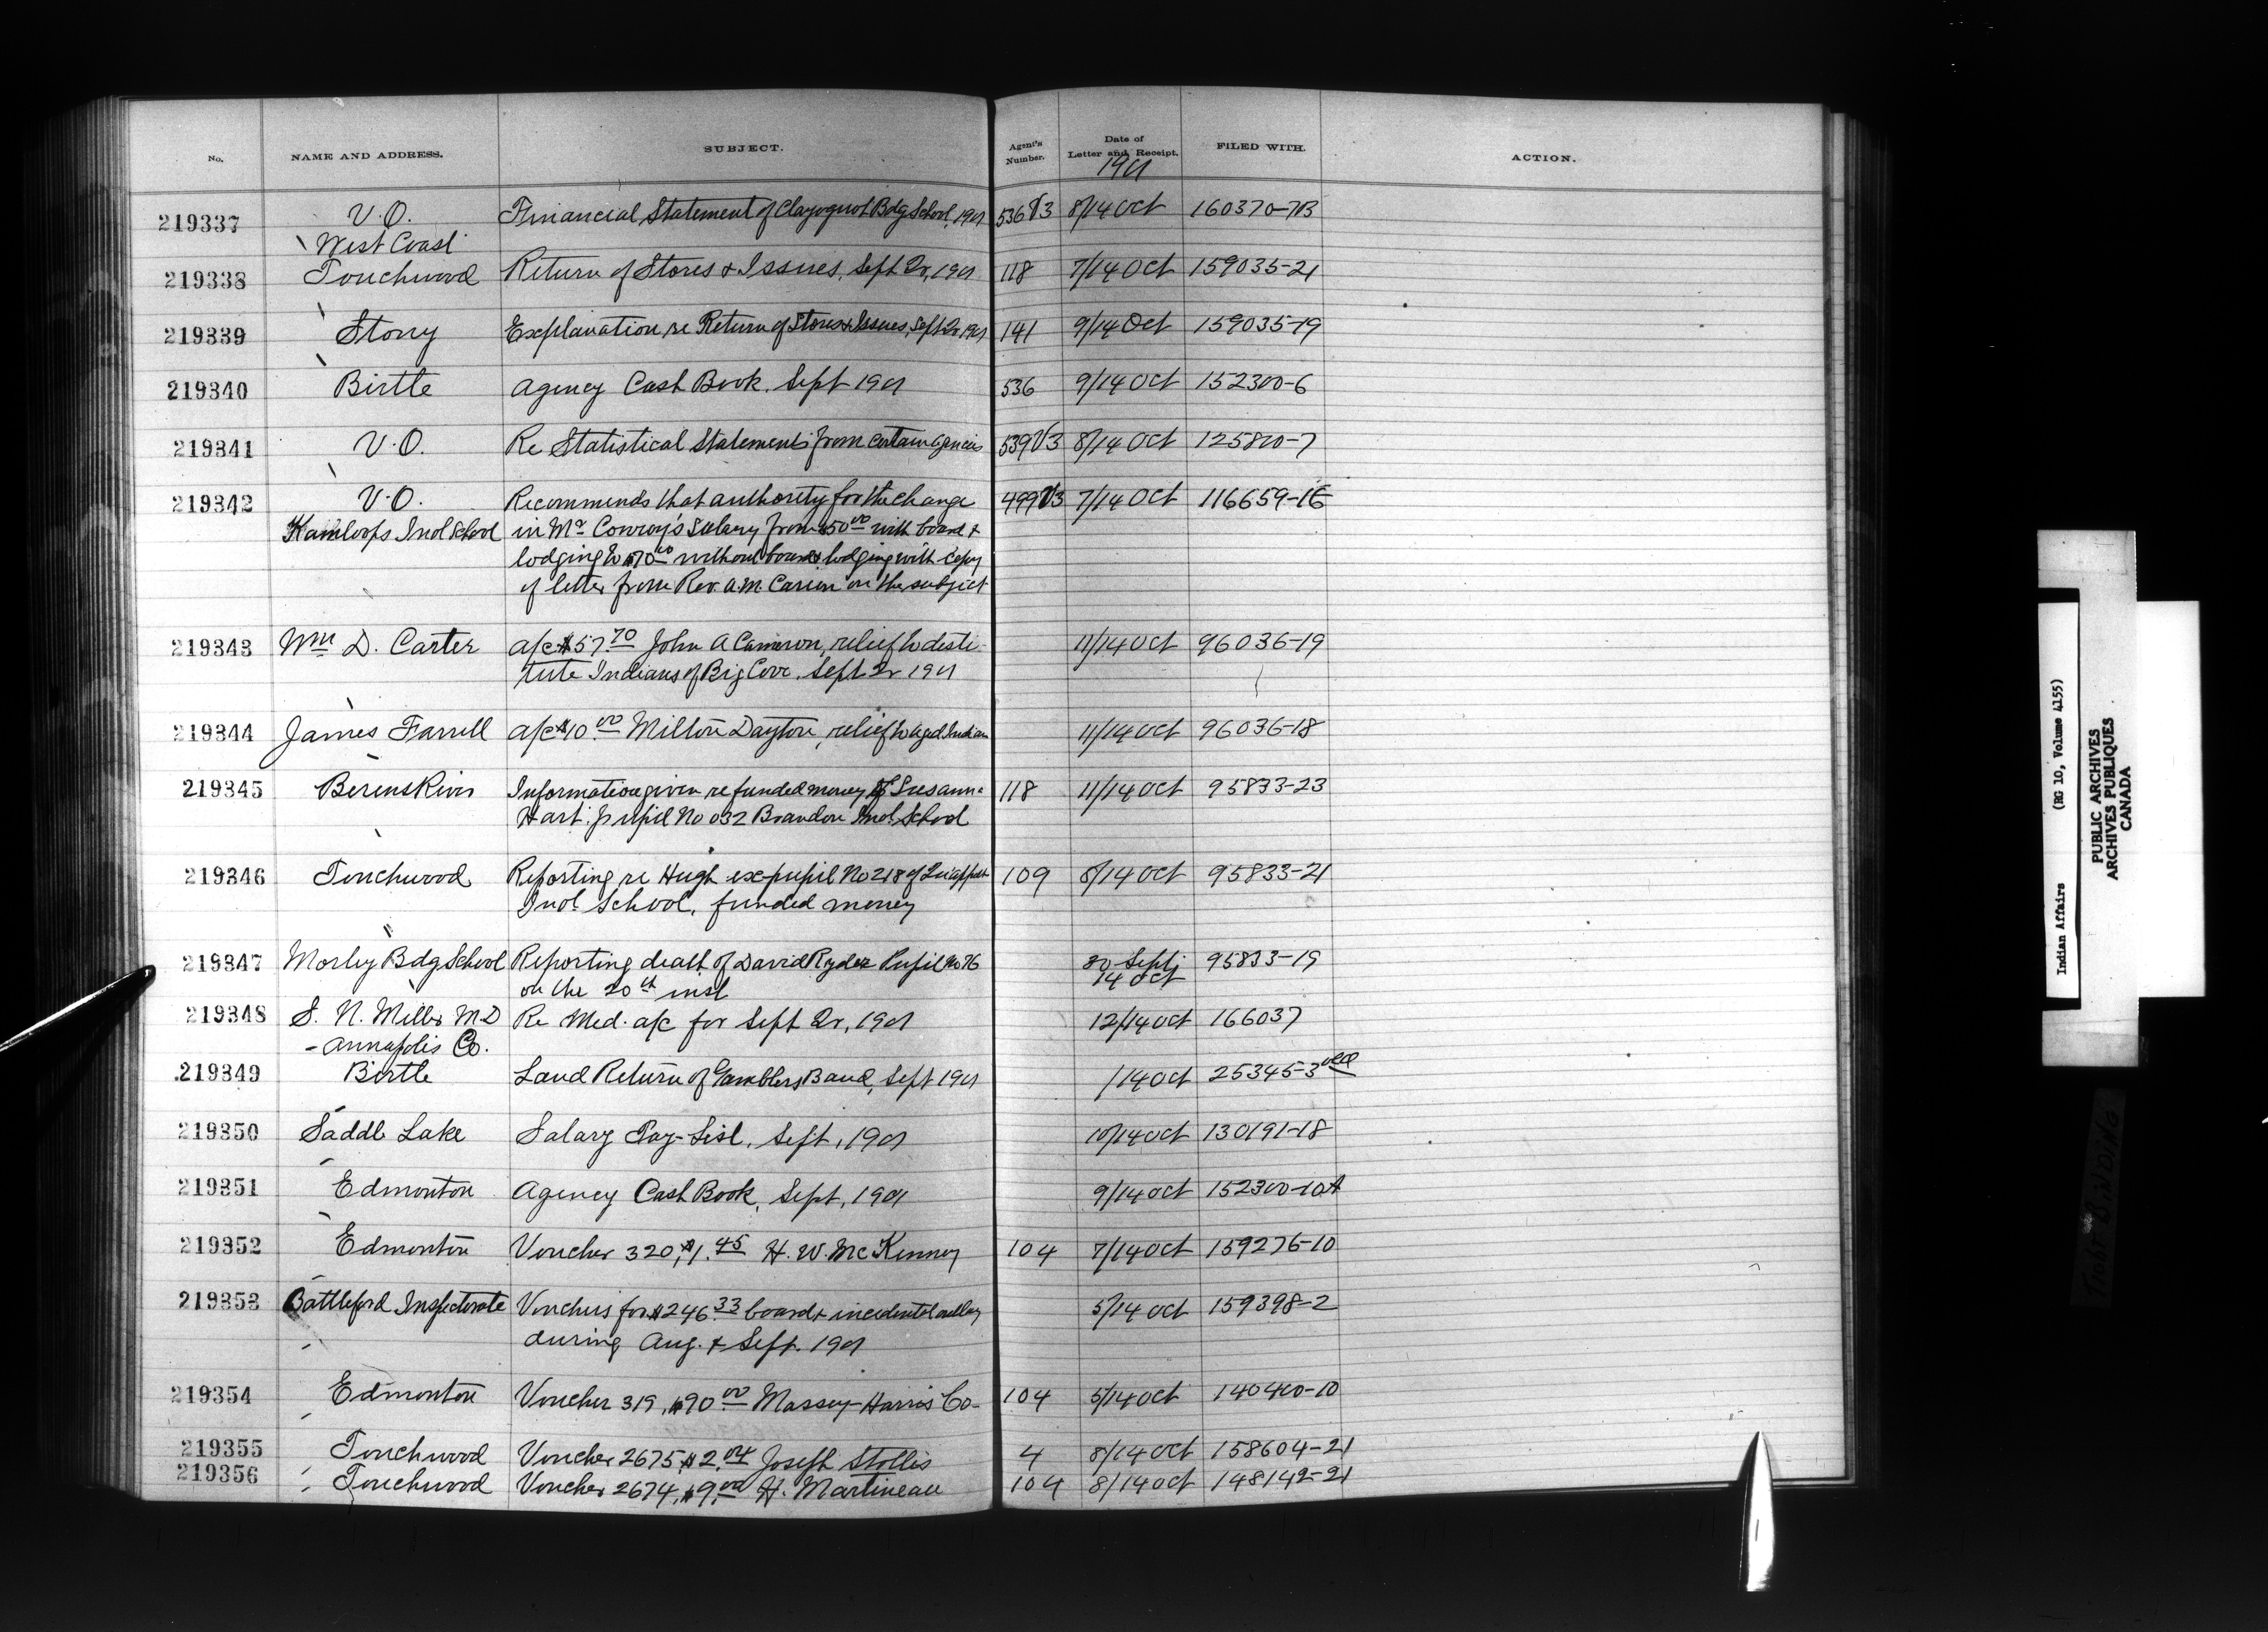 No. NAME AND ADDRESS. SUBJECT. Agent's Number. Date of Letter and Receipt. FILED WITH. ACTION.
1901
219337 V.O. Financial Statement of Clayoquot Bdg School, 1901 536 V3 8/14 Oct 160370-7B
West Coast
219338 Touchwood Return of Stores & Issues, Sept Qr, 1901 118 7/14 Oct 159035-21
219339 Stony Explanation re Return of Stores & Issues, Sept Qr 1901 141 9/14 Oct 159035-19
219340 Birtle Agency Cash Book. Sept 1901 536 9/14 Oct 152300-6
219341 V.O. Re Statistical Statements from certain agencies 539 V3 8/14 Oct 125800-7
219342 V.O. Recommends that authority for the change 499 V3 7/14 Oct 116659-1E
Kamloops Indl School in Mr Conroy's Salary from $50.00 with board &
lodging to $70.00 without board & lodging with copy
of letter from Rev. A.M. Carion on the subject
219343 Wm D. Carter a/c $57.70 John A Cameron, relief to desti-
tute Indians of Big Cove. Sept Qr 1901 11/14 Oct 96036-19
219344 James Farrell a/c $10.00 Milton Dayton, relief to aged Indian 11/14 Oct 96036-18
219345 Berens River Information given re funded money of Susanna 118 11/14 Oct 95833-23
Hart. pupil No 032 Brandon Indl. School
219346 Touchwood Reporting re Hugh ex-pupil No 218 of Qu'appelle 109 8/14 Oct 95833-21
Indl. School, funded money
219347 Morley Bdg School Reporting death of David Ryder Pupil No 76 30 Sept/ 95833-19
on the 20th inst 14 Oct
219348 S. N. Miller M.D Re Med. a/c for Sept Qr, 1901 12/14 Oct 166037
- Annapolis Co.
219349 Birtle Land Return of Gamblers Band, Sept 1901 /14 Oct 25345-3
219350 Saddle Lake Salary Pay-List, Sept, 1901 10/14 Oct 130191-18
219351 Edmonton Agency Cash Book, Sept, 1901 9/14 Oct 152300-10A
219352 Edmonton Voucher 320, $1.45 H. W. McKenney 104 7/14 Oct 159276-10
219353 Battleford Inspectorate Vouchers for $246.33 board & incidental outlay 5/14 Oct 159398-2
during Aug. & Sept. 1901
219354 Edmonton Voucher 319, $90.00 Massey-Harris Co- 104 5/14 Oct 140400-10
219355 Touchwood Voucher 2675 $2.04 Joseph Stollis 4 8/14 Oct 158604-21
219356 Touchwood Voucher 2674, $9.00 H. Martineau 104 8/14 Oct 148142-21
Indian Affairs (RG 10, Volume 4155)
PUBLIC ARCHIVES
ARCHIVES PUBLIQUES
CANADA